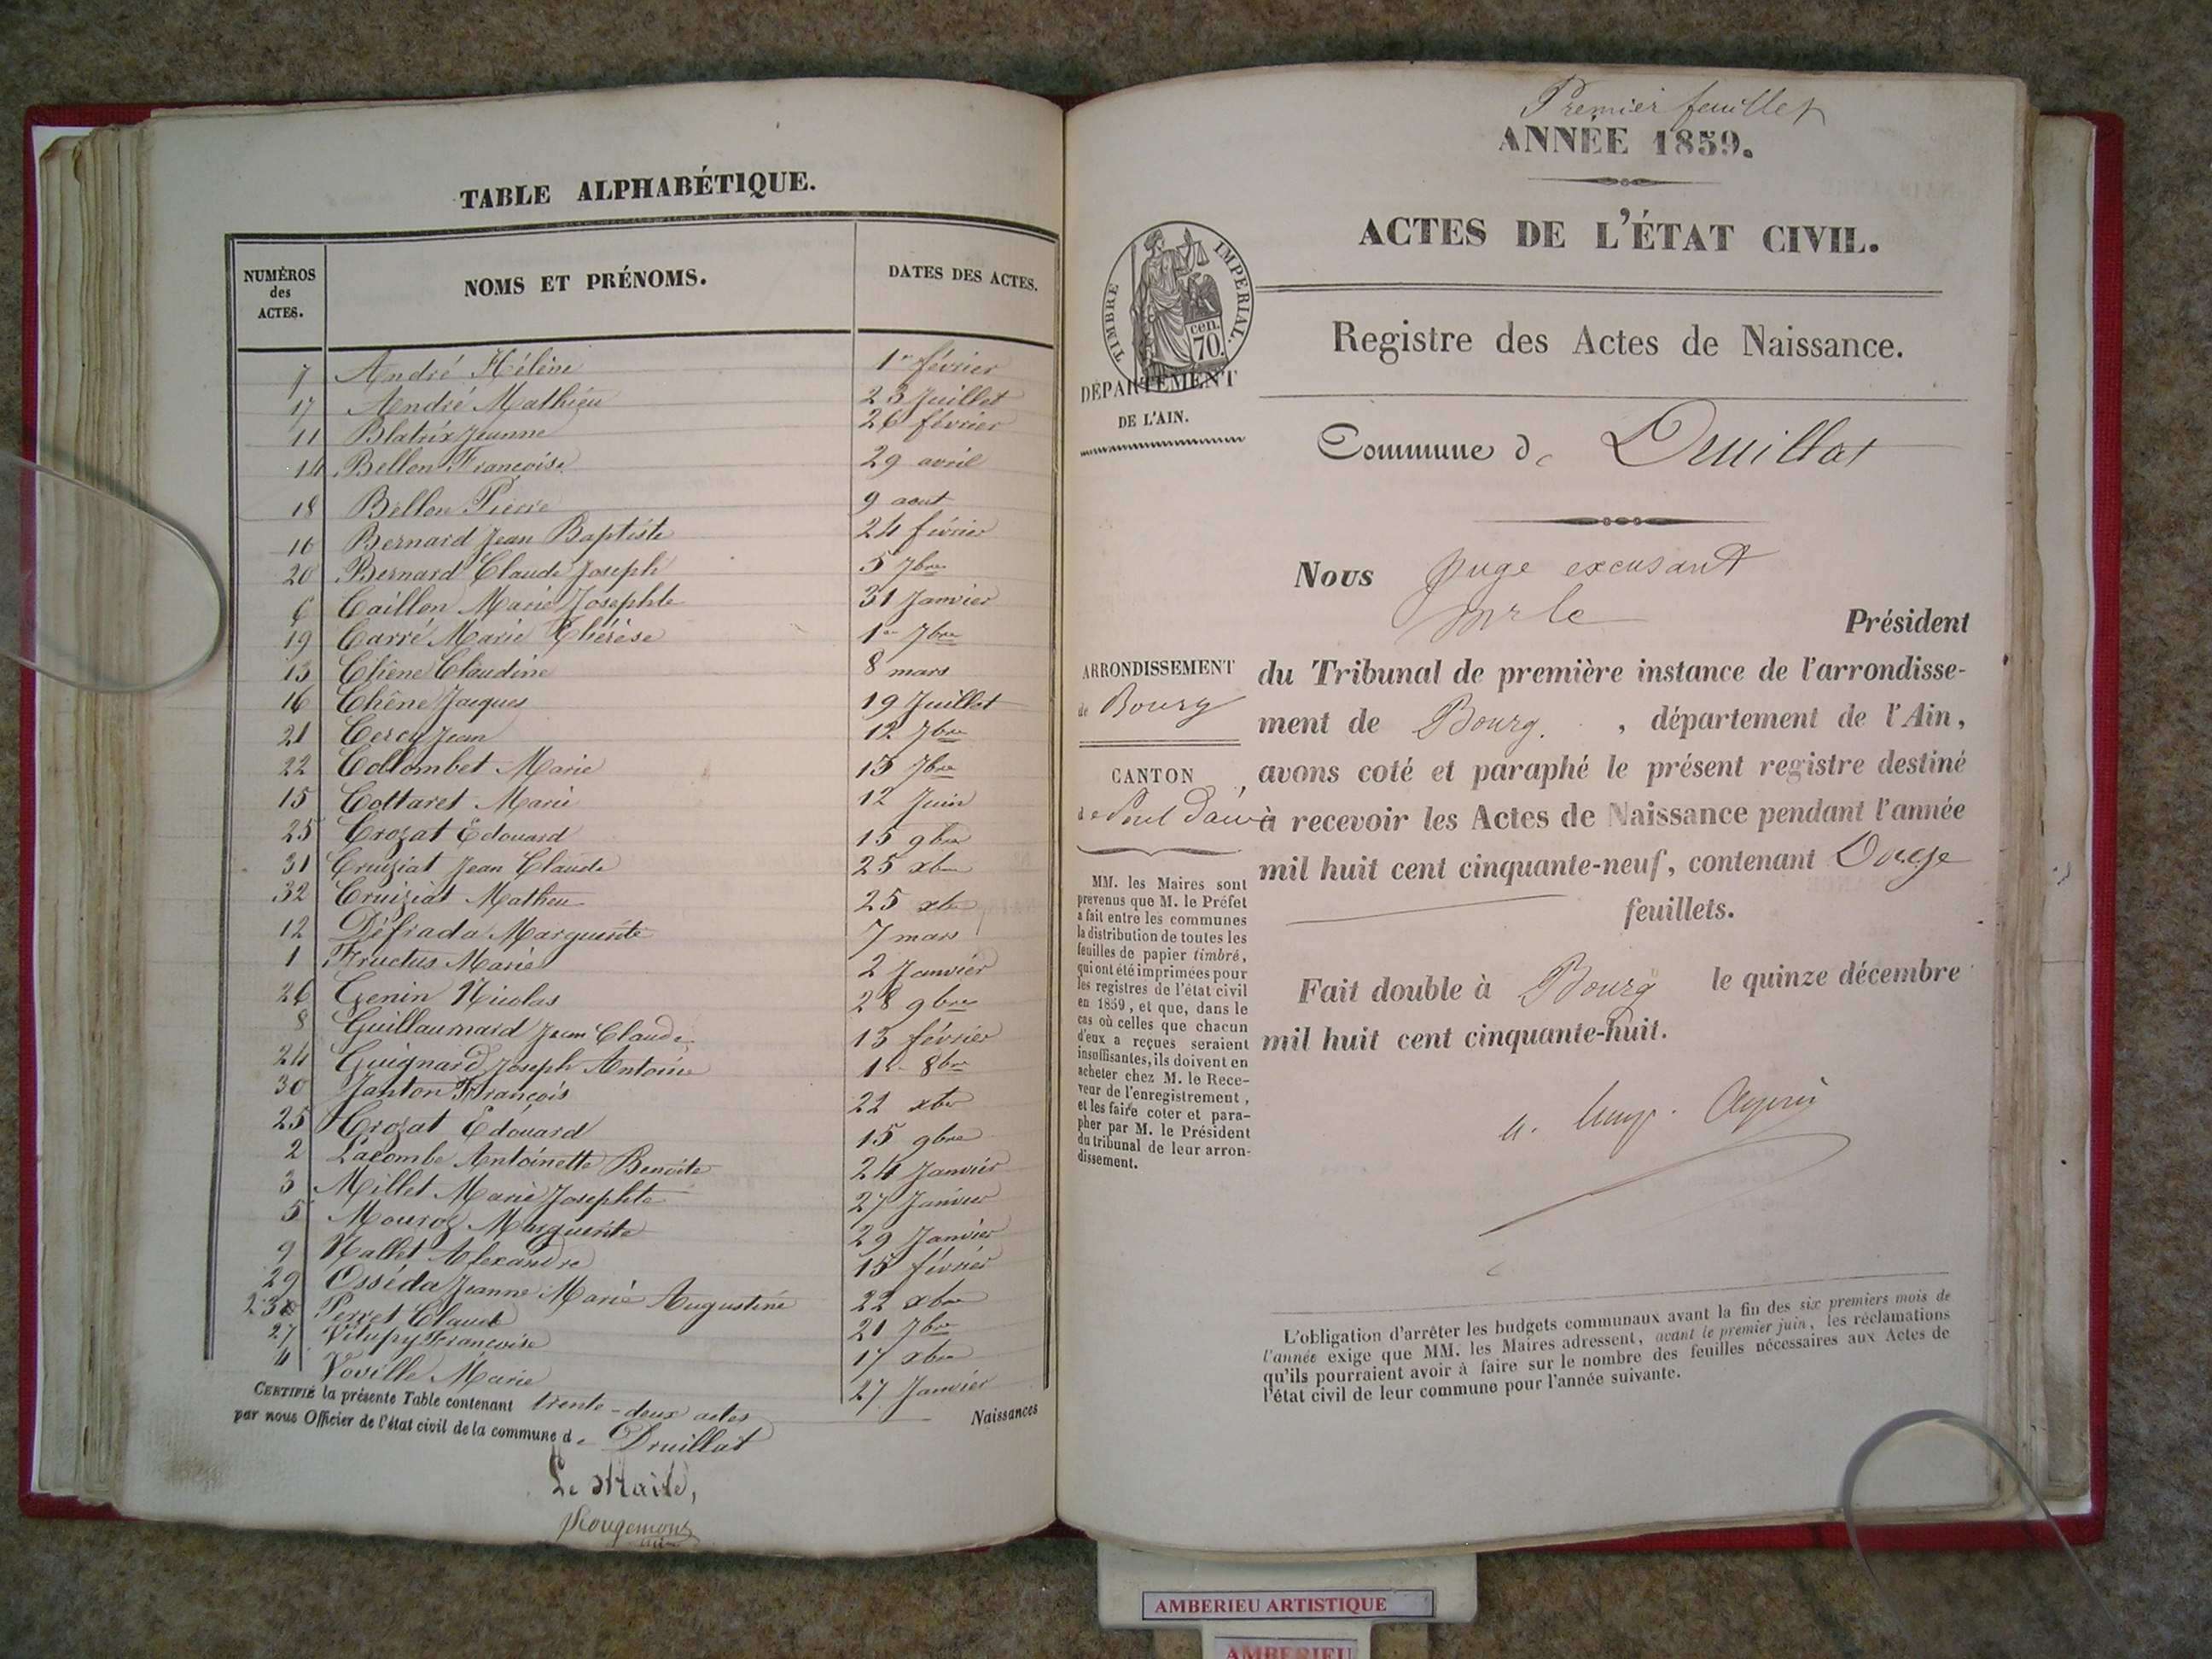 TABLE ALPHABÉTIQUE.
NUMÉROS des ACTES. NOMS ET PRÉNOMS. DATES DES ACTES.
7 André Hélène 1er février
17 André Mathieu 23 Juillet
11 Blatrix Jeanne 26 février
14 Bellon Françoise 29 avril
18 Bellon Pierre 9 aout
10 Bernard Jean Baptiste 24 février
20 Bernard Claude Joseph 5 7bre
6 Caillon Marie Josephte 31 Janvier
19 Carré Marie Thérèse 1er 7bre
13 Chêne Claudine 8 mars
16 Chêne Jacques 19 Juillet
21 Cercy Jean 12 7bre
22 Collombet Marie 13 7bre
15 Cottaret Marie 12 Juin
25 Crozat Edouard 15 9bre
31 Cruiziat Jean Claude 25 xbre
32 Cruiziat Mathieu 25 xbre
12 Défrada Marguerite 7 mars
1 Fructus Marie 2 Janvier
26 Genin Nicolas 28 9bre
8 Guillaumard Jean Claude 13 février
24 Guignard Joseph Antoine 1er 8bre
30 Janton François 22 xbre
25 Crozat Edouard 15 9bre
2 Lacombe Antoinette Benoite 24 Janvier
3 Millet Marie Josephte 27 Janvier
5 Mouroz Marguerite 29 Janvier
9 Nallet Alexandre 15 février
29 Osséda Jeanne Marie Augustine 22 xbre
23 Perret Claude 21 7bre
27 Vitupy Françoise 17 xbre
4 Voville Marie 27 Janvier
CERTIFIÉ la présente Table contenant trente-deux actes Naissances
par nous Officier de l'état civil de la commune de Druillat
Le Maire,
Rougemont
Premier feuillet
ANNÉE 1859.
ACTES DE L'ÉTAT CIVIL.
TIMBRE IMPERIAL.
cen.
70.
Registre des Actes de Naissance.
DÉPARTEMENT
DE L'AIN.
Commune de Druillat
Nous Juge excusant
Mr le Président
ARRONDISSEMENT
de Bourg
CANTON
de Pont d'ain
du Tribunal de première instance de l'arrondisse-
ment de Bourg. , département de l'Ain,
avons coté et paraphé le présent registre destiné
à recevoir les Actes de Naissance pendant l'année
mil huit cent cinquante-neuf, contenant Onze
feuillets.
Fait double à Bourg le quinze décembre
mil huit cent cinquante-huit.
MM. les Maires sont
prévenus que M. le Préfet
a fait entre les communes
la distribution de toutes les
feuilles de papier timbré,
qui ont été imprimées pour
les registres de l'état civil
en 1859, et que, dans le
cas où celles que chacun
d'eux a reçues seraient
insuffisantes, ils doivent en
acheter chez M. le Rece-
veur de l'enregistrement,
et les faire coter et para-
pher par M. le Président
du tribunal de leur arron-
dissement.
L'obligation d'arrêter les budgets communaux avant la fin des six premiers mois de
l'année exige que MM. les Maires adressent, avant le premier juin, les réclamations
qu'ils pourraient avoir à faire sur le nombre des feuilles nécessaires aux Actes de
l'état civil de leur commune pour l'année suivante.
AMBERIEU ARTISTIQUE
AMBERIEU